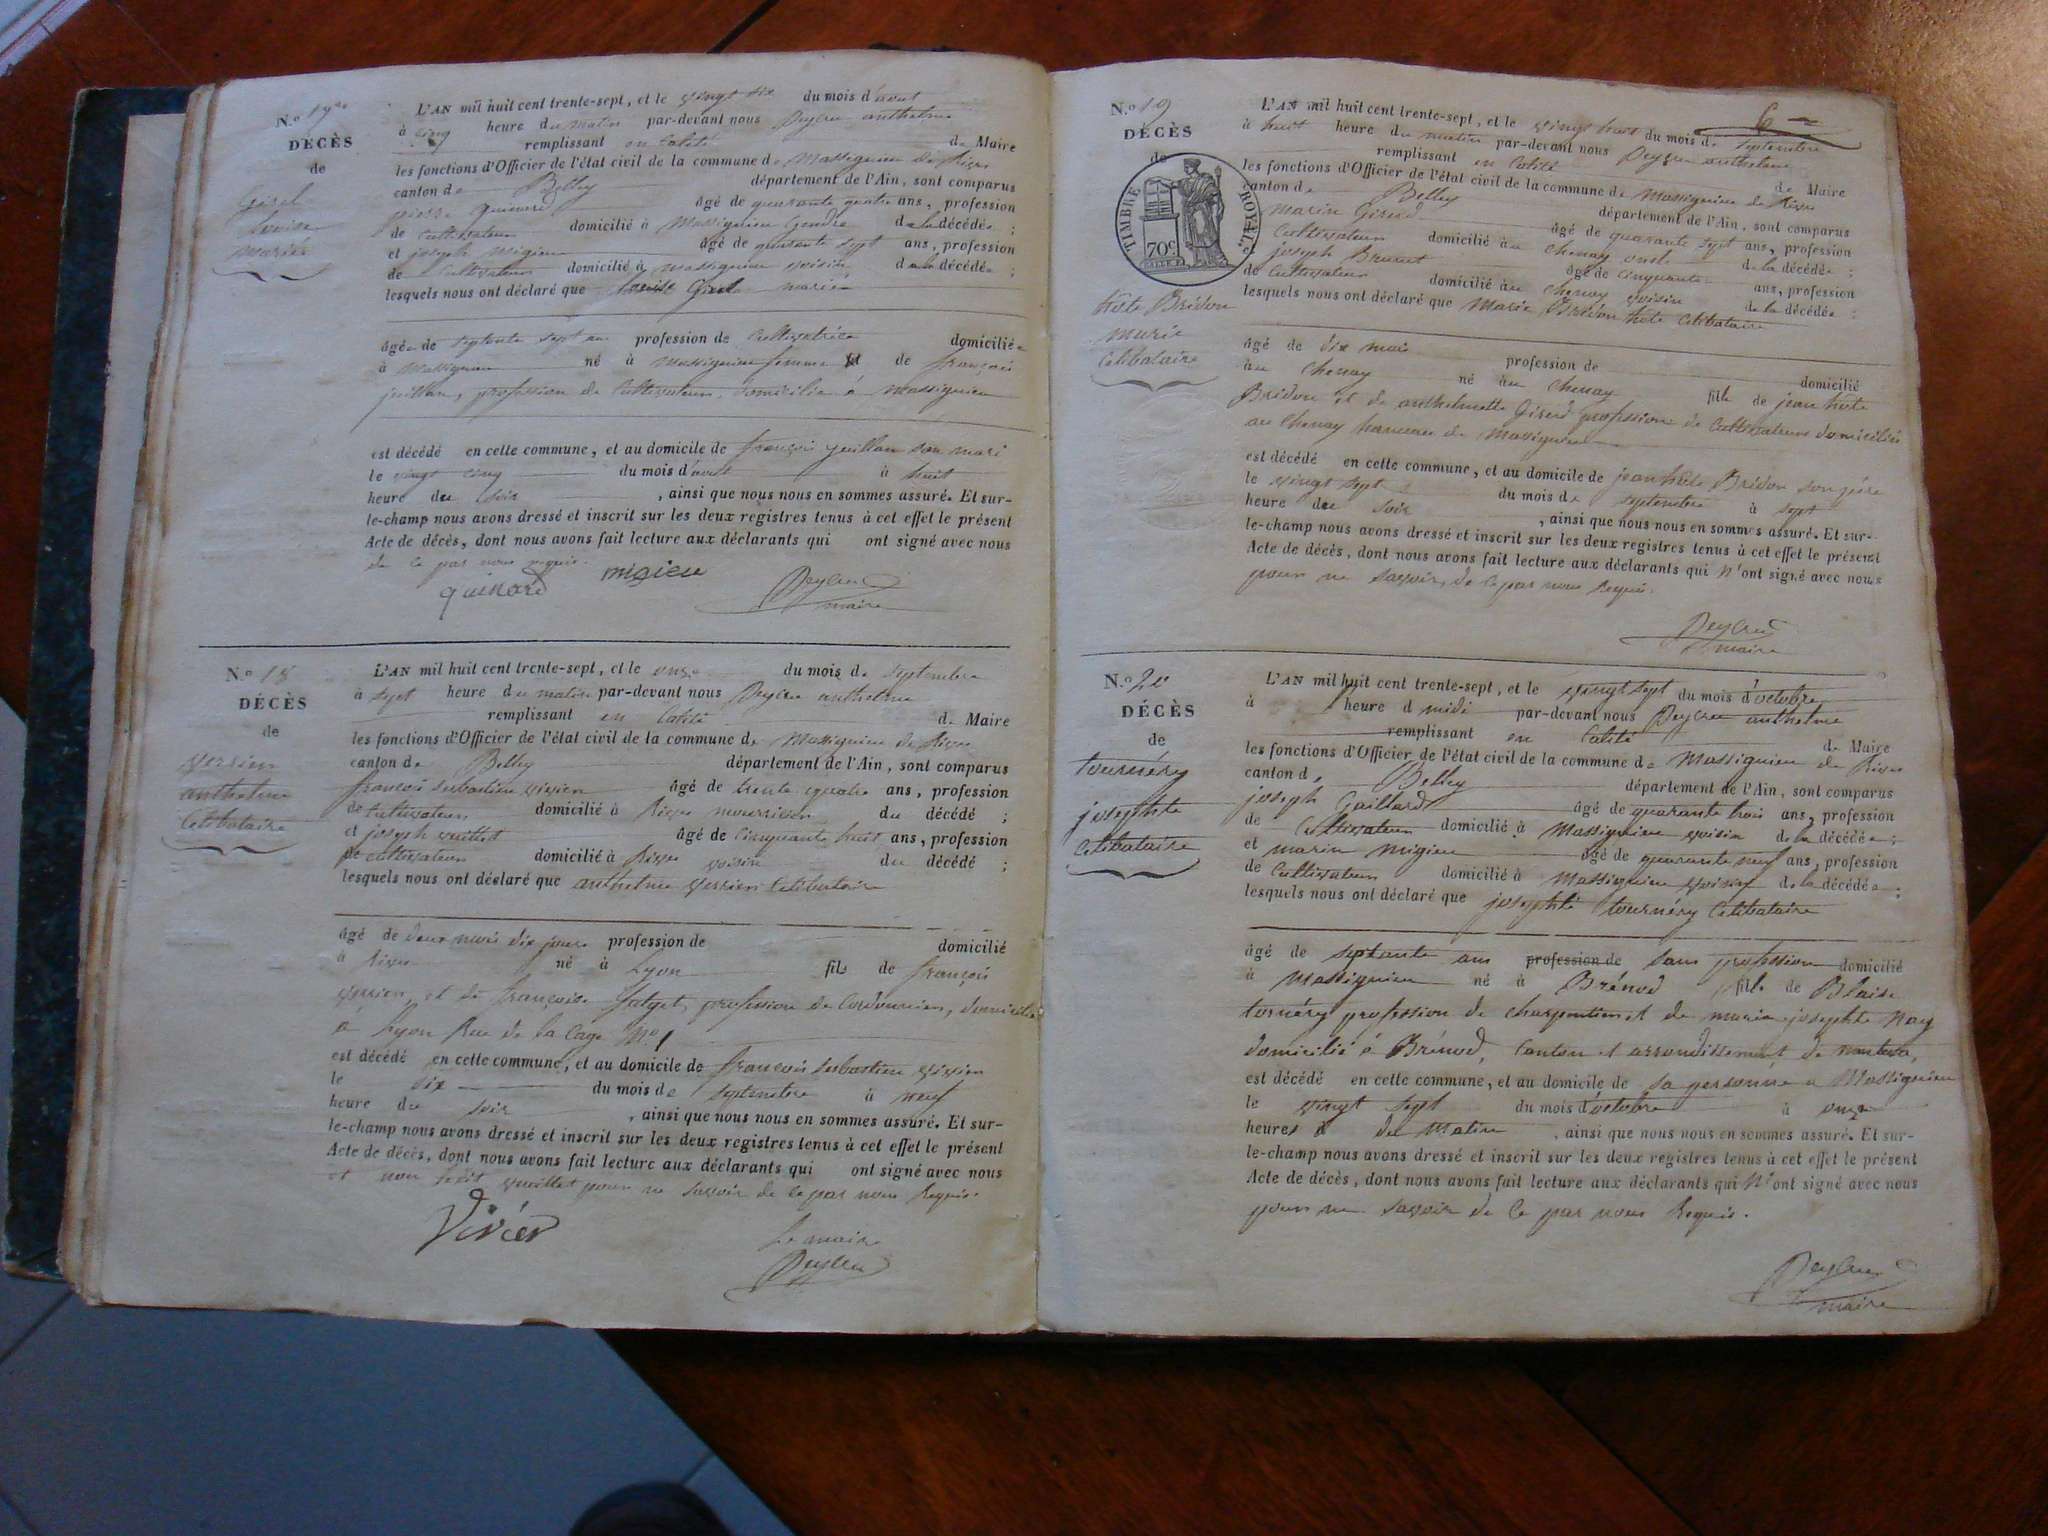 N.o 17
DÉCÈS
de
Girel
Louise
mariée
L'AN mil huit cent trente-sept, et le vingt six du mois d'aout
à cinq heure du matin par-devant nous Peyzeu anthelme
remplissant en calité de Maire
les fonctions d'Officier de l'état civil de la commune de Massignieu de Rives
canton de Belley département de l'Ain, sont comparus
pierre quinard âgé de quarante quatre ans, profession
de cultivateur domicilié à Massignieu Gendre de la décédée ;
et joseph migieu âgé de quarante sept ans, profession
de cultivateur domicilié à massignieu voisin de la décédée ;
lesquels nous ont déclaré que Louise Girel mariée
âgée de septante sept ans profession de cultivatrice domiciliée
à Massignieu né à Massignieu femme de françois
juillan, profession de Cultivateur, domicilié à massignieu
est décédé en cette commune, et au domicile de françois juillan son mari
le vingt cinq du mois d'aout à huit
heure du soir , ainsi que nous nous en sommes assuré. Et sur-
le-champ nous avons dressé et inscrit sur les deux registres tenus à cet effet le présent
Acte de décès, dont nous avons fait lecture aux déclarants qui ont signé avec nous
de ce par nous requis.
quinard migieu Peyzeu
maire
N.o 18
DÉCÈS
de
vivien
anthelme
Celibataire
L'AN mil huit cent trente-sept, et le onze du mois de septembre
à sept heure du matin par-devant nous Peyzeu anthelme
remplissant en calité de Maire
les fonctions d'Officier de l'état civil de la commune de Massignieu de Rives
canton de Belley département de l'Ain, sont comparus
francois sebastien vivien âgé de trente quatre ans, profession
de cultivateur domicilié à Rives nourricier du décédé ;
et joseph vuillet âgé de cinquante huit ans, profession
de cultivateur domicilié à Rives voisin du décédé ;
lesquels nous ont déclaré que anthelme vivien Celibataire
âgé de deux mois dix jours profession de domicilié
à Rives né à Lyon fils de françois
vivien et de françoise profession de Cordonnier, domicilié
à Lyon Rue de la Cage No 1
est décédé en cette commune, et au domicile de francois sebastien vivien
le dix du mois de septembre à neuf
heure du soir , ainsi que nous nous en sommes assuré. Et sur-
le-champ nous avons dressé et inscrit sur les deux registres tenus à cet effet le présent
Acte de décès, dont nous avons fait lecture aux déclarants qui ont signé avec nous
et non ledit vuillet pour ne savoir de ce par nous Requis.
Le maire
Peyzeu
6
N.o 19
DÉCÈS
de
TIMBRE ROYAL.
70c
tiste Brédon
marie
Celibataire
L'AN mil huit cent trente-sept, et le vingt huit du mois de septembre
à huit heure du matin par-devant nous Peyzeu anthelme
remplissant en calité de Maire
les fonctions d'Officier de l'état civil de la commune de Massignieu de Rives
canton de Belley département de l'Ain, sont comparus
marin Girerd âgé de quarante sept ans, profession
Cultivateur domicilié au Chenay oncle de la décédée ;
joseph Brunet âgé de cinquante ans, profession
de Cultivateur domicilié au chenay voisin de la décédée ;
lesquels nous ont déclaré que Marie Brédon tiste celibataire
âgé de dix mois profession de domicilié
au Chenay né au Chenay fille de jean tiste
Brédon et de anthelmette Girerd profession de Cultivateurs domiciliés
au Chenay hameau de Massignieu
est décédé en cette commune, et au domicile de jean tiste Brédon son père
le vingt sept du mois de septembre à sept
heure du soir , ainsi que nous nous en sommes assuré. Et sur-
le-champ nous avons dressé et inscrit sur les deux registres tenus à cet effet le présent
Acte de décès, dont nous avons fait lecture aux déclarants qui n'ont signé avec nous
pour ne savoir, de ce par nous Requis.
Peyzeu
maire
N.o 20
DÉCÈS
de
tournéry
josephte
Celibataire
L'AN mil huit cent trente-sept, et le vingt sept du mois d'octobre
à heure d midi par-devant nous Peyzeu anthelme
remplissant en calité de Maire
les fonctions d'Officier de l'état civil de la commune de Massignieu de Rives
canton d Belley département de l'Ain, sont comparus
joseph Gaillard âgé de quarante trois ans, profession
de Cultivateur domicilié à Massignieu voisin de la décédée ;
et marin migieu âgé de quarante neuf ans, profession
de Cultivateur domicilié à Massignieu voisin de la décédée ;
lesquels nous ont déclaré que josephte tournéry Celibataire
âgé de septante ans profession de sans profession domicilié
à Massignieu né à Brénod fille de Blaise
tornéry profession de charpentier et de marie josephte Nay
domicilié à Brénod, Canton et arrondissement de nantua,
est décédé en cette commune, et au domicile de sa personne à Massignieu
le vingt sept du mois d'octobre à onze
heures du Matin , ainsi que nous nous en sommes assuré. Et sur-
le-champ nous avons dressé et inscrit sur les deux registres tenus à cet effet le présent
Acte de décès, dont nous avons fait lecture aux déclarants qui N'ont signé avec nous
pour ne savoir de ce par nous Requis.
Peyzeu
maire